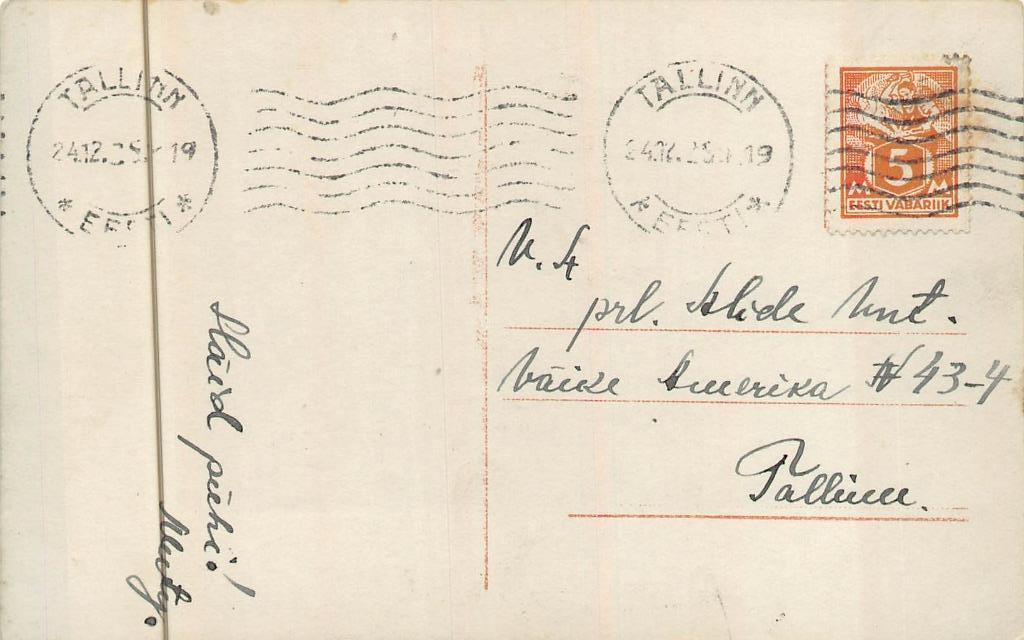 TALLINN
24.12. 19
* EESTI *
TALLINN
24.12. 19
* EESTI *
5
M M
EESTI VABARIIK
V. A
prl. Alide Unt.
Väike Amerika # 43-4
Tallinn.
Häid pühi!